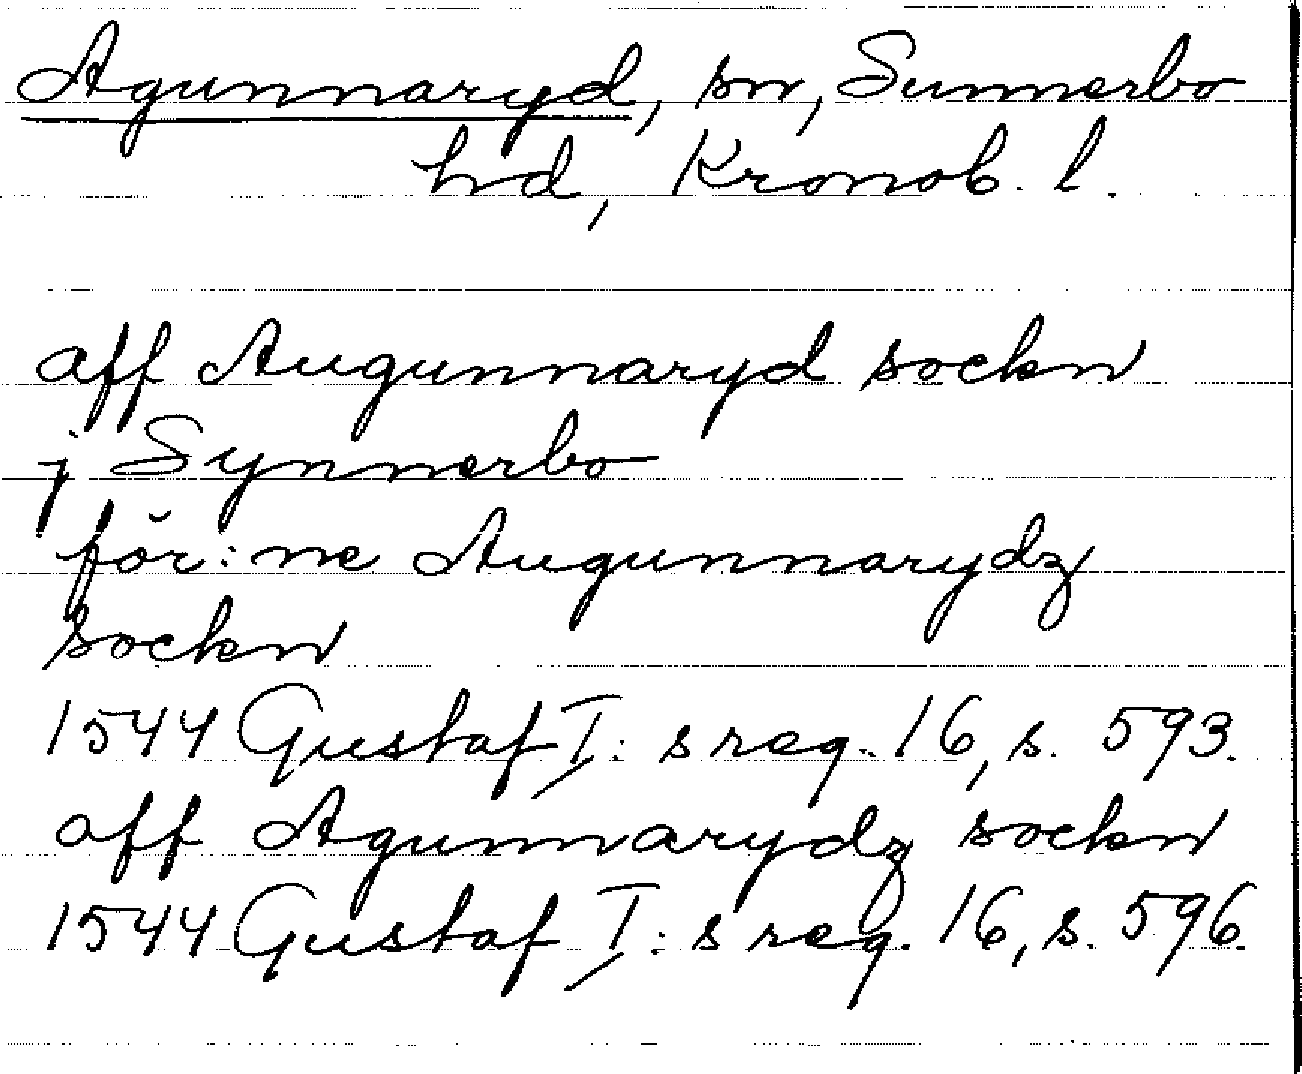 Agunnaryd, sn, Sunnerbo
hd, Kronob. l.
aff Augunnaryd sockn
j Synnerbo
för:ne Augunnarydz
sockn
1544 Gustaf I:s reg. 16, s. 593.
aff Agunnarydz sockn
1544 Gustaf I:s reg. 16, s. 596.